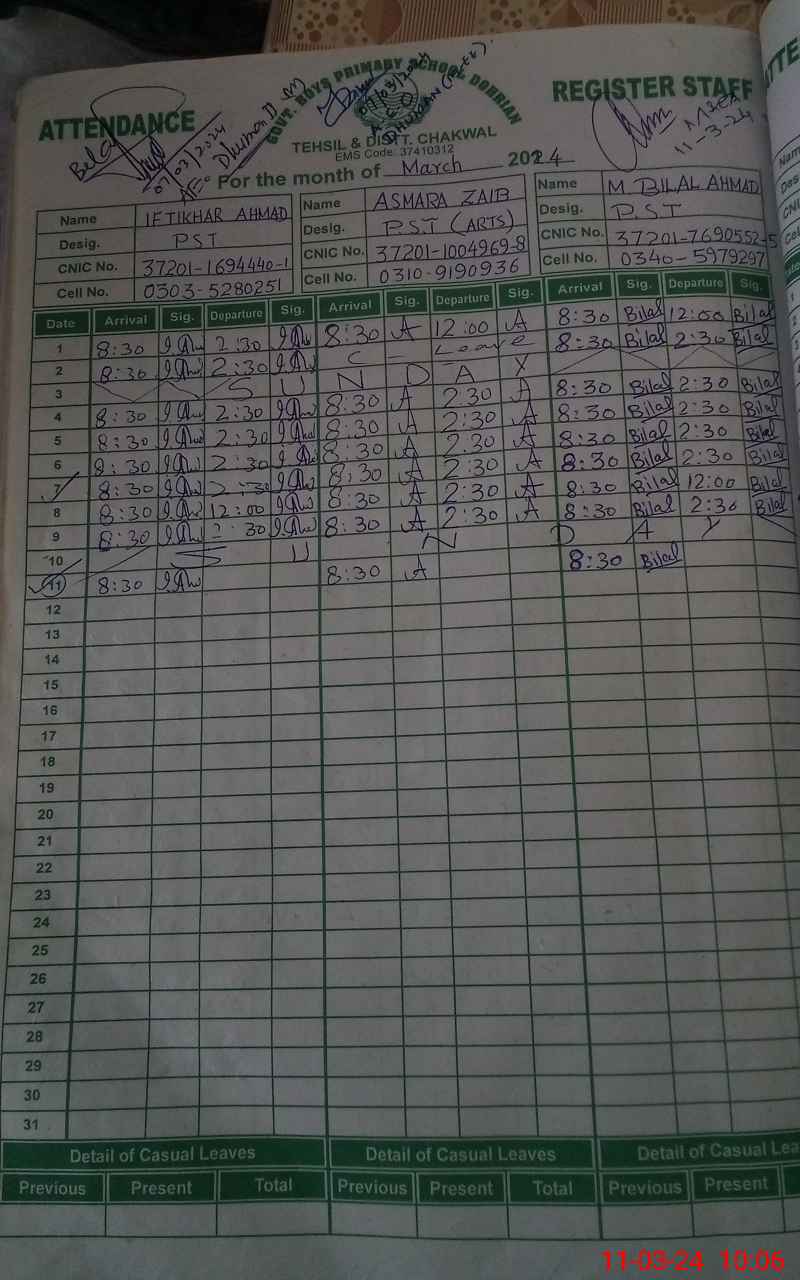 ATTENDANCE GOVT. BOYS PRIMARY SCHOOL DOHRIAN REGISTER STAFF
Bilal
07/03/2024
07/03/2024
MBEA
11-3-24
TEHSIL & DISTT. CHAKWAL
EMS Code: 37410312
For the month of March 2024
Name IFTIKHAR AHMAD Name ASMARA ZAIB Name M BILAL AHMAD
Desig. PST Desig. P.S.T (ARTS) Desig. P.S.T
CNIC No. 37201-1694440-1 CNIC No. 37201-1004969-8 CNIC No. 37201-7690552-5
Cell No. 0303-5280251 Cell No. 0310-9190936 Cell No. 0340-5979297
Date Arrival Sig. Departure Sig. Arrival Sig. Departure Sig. Arrival Sig. Departure Sig.
1 8:30 2:30 8:30 A 12:00 A 8:30 Bilal 12:00 Bilal
2 8:30 2:30 C - Leave 8:30 Bilal 2:30 Bilal
3 S U N D A Y
4 8:30 2:30 8:30 A 2:30 A 8:30 Bilal 2:30 Bilal
5 8:30 2:30 8:30 A 2:30 A 8:30 Bilal 2:30 Bilal
6 8:30 2:30 8:30 A 2:30 A 8:30 Bilal 2:30 Bilal
7 8:30 2:30 8:30 A 2:30 A 8:30 Bilal 2:30 Bilal
8 8:30 12:00 8:30 A 2:30 A 8:30 Bilal 12:00 Bilal
9 8:30 2:30 8:30 A 2:30 A 8:30 Bilal 2:30 Bilal
10 S U N D A Y
11 8:30 8:30 A 8:30 Bilal
12
13
14
15
16
17
18
19
20
21
22
23
24
25
26
27
28
29
30
31
Detail of Casual Leaves Detail of Casual Leaves Detail of Casual Lea
Previous Present Total Previous Present Total Previous Present
11-03-24 10:06